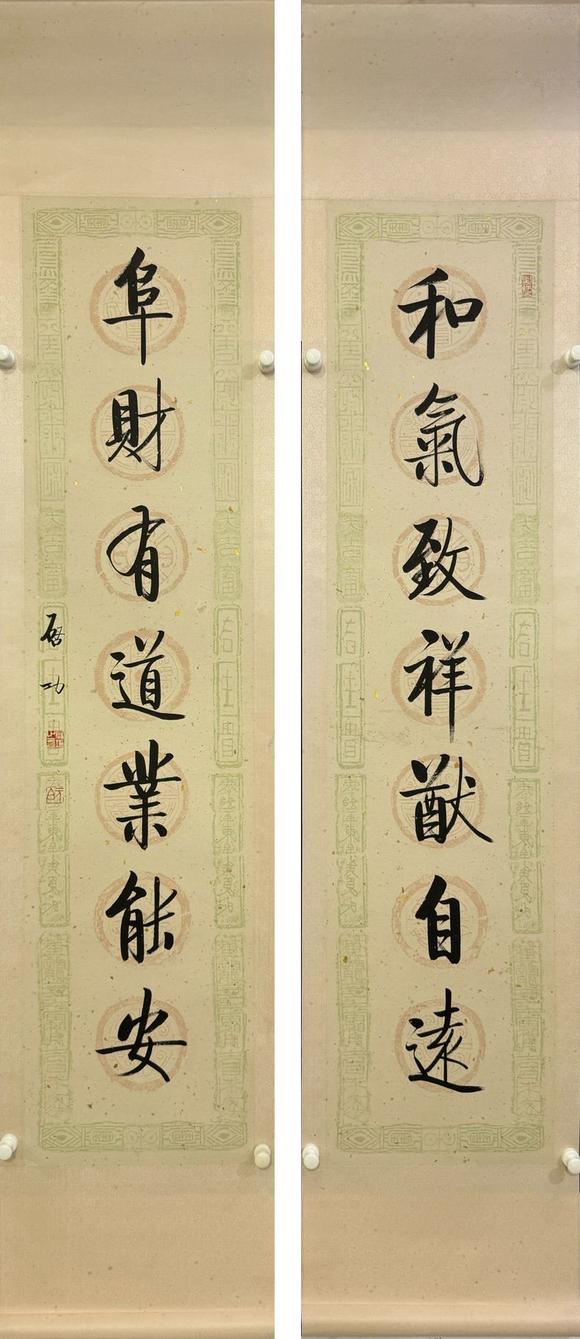 和氣致祥猷自遠
阜財有道業能安
啟功